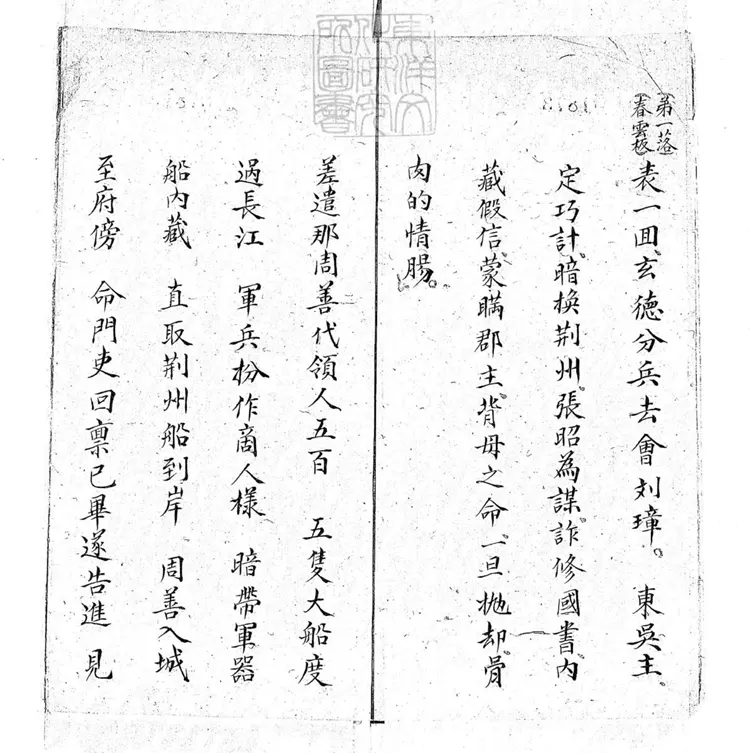 東洋文
化研究
所圖書
(第一落)
(春雲板)
表一囬、玄德分兵去會刘璋。 東吳主。
定巧計、暗換荆州。張昭為謀。詐修國書。內
藏假信。蒙瞞郡主。背母之命。一旦抛却骨
肉的情腸。
差遣那周善代領人五百 五隻大船度
過長江 軍兵扮作商人樣 暗帶軍器
船內藏 直取荆州船到岸 周善入城
至府傍 命門吏回禀已畢遂告進 見